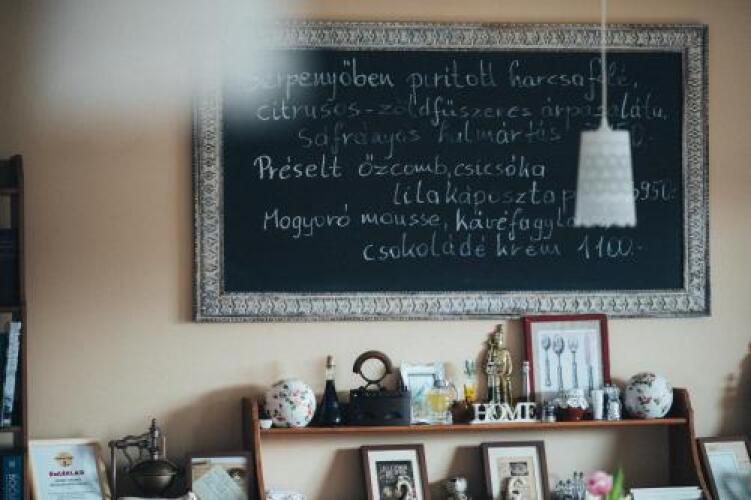 Serpenyőben pirított harcsafilé,
citrusos-zöldfűszeres árpasaláta,
sáfrányos halmártás
Préselt őzcomb, csicsóka
lilakáposzta 950.-
Mogyoró mousse, kávéfagylalt
csokoládé krém 1100.-
HOME
EMLÉKLAP